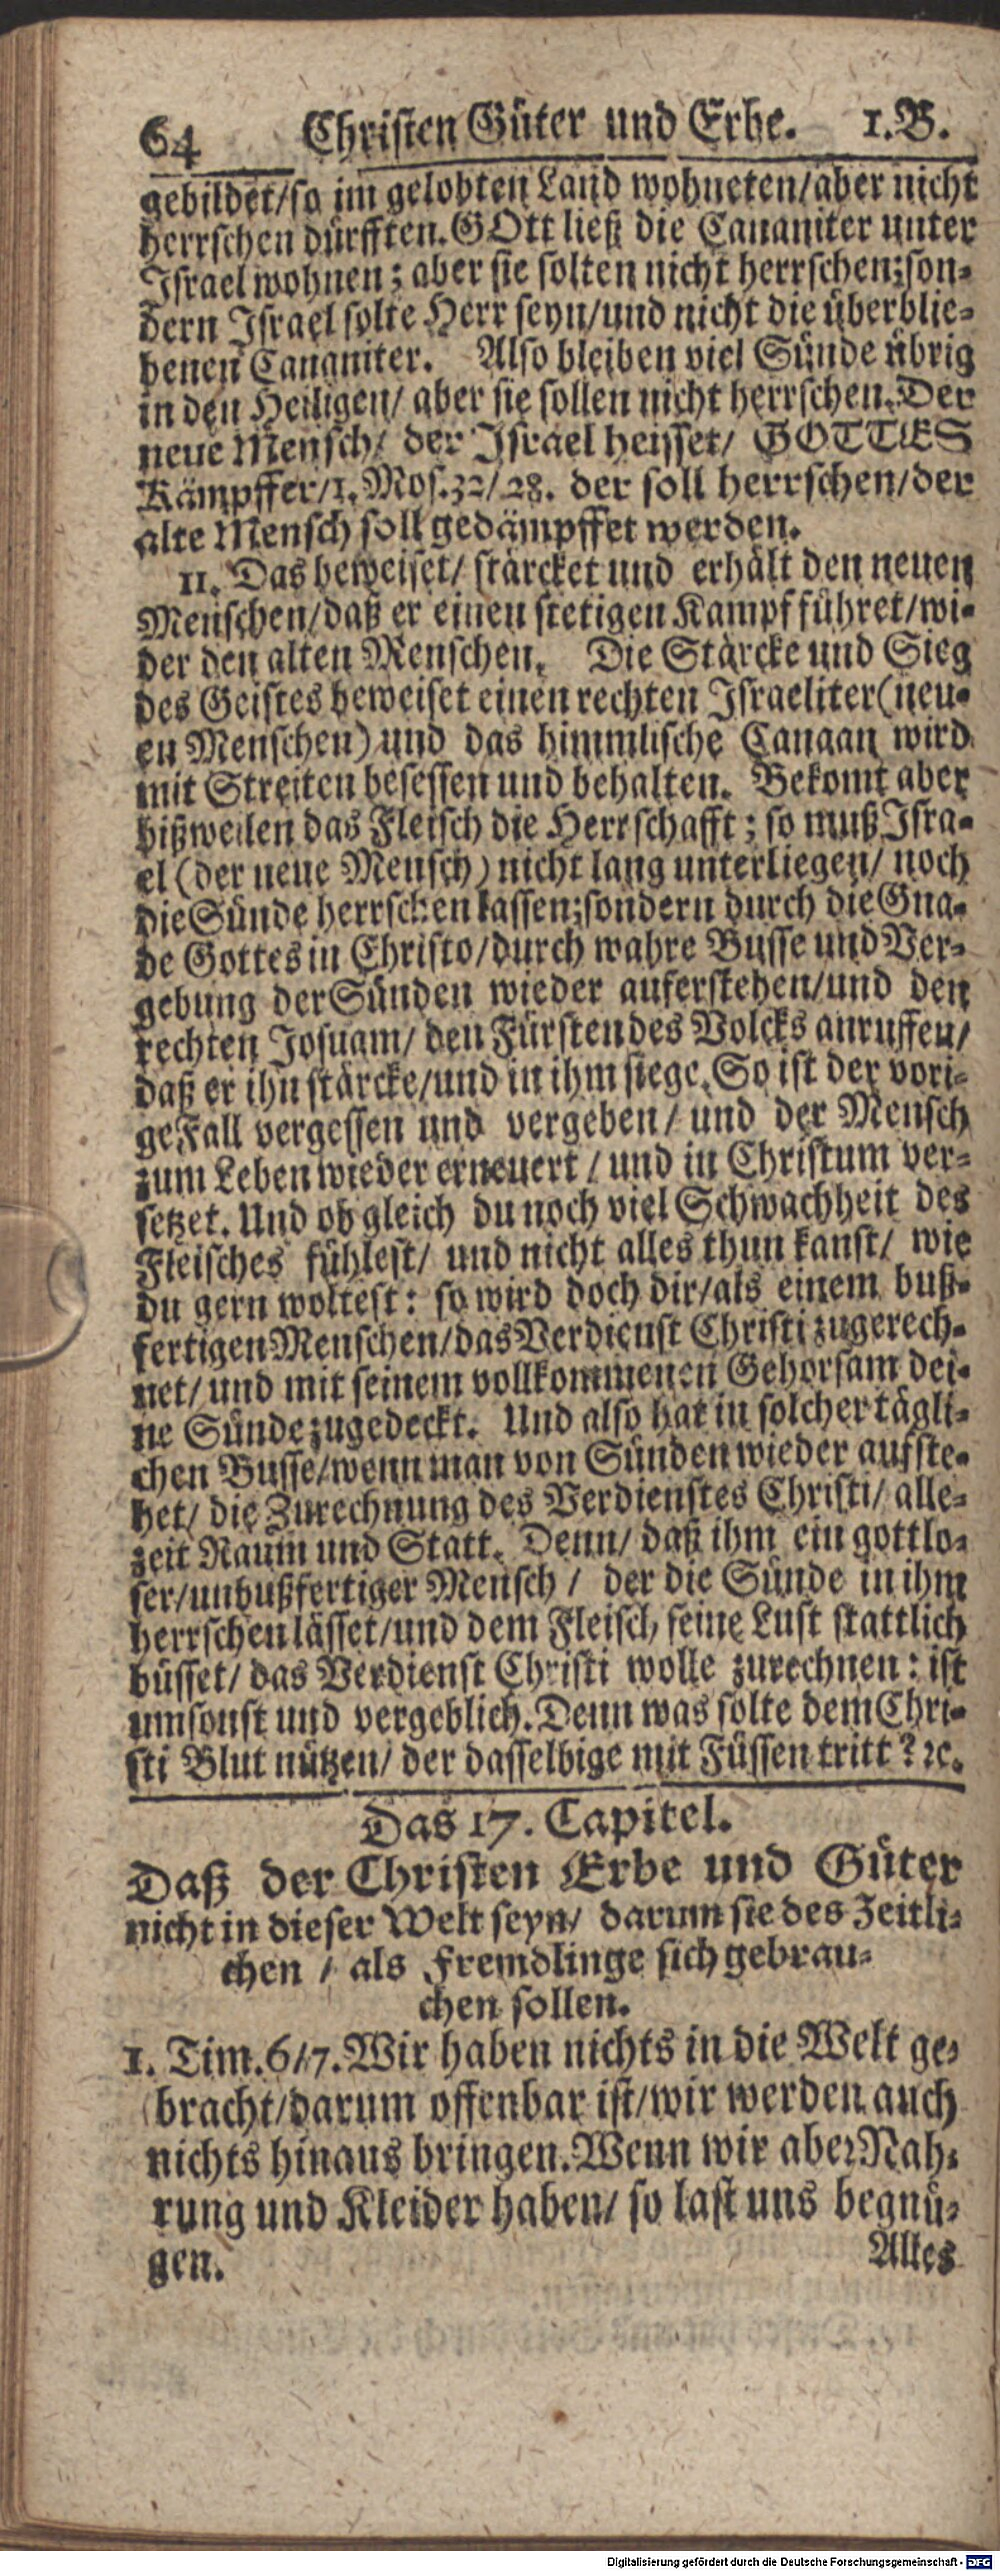 64 Christen Güter und Erbe. 1. B.
gebildet/so im gelobten Land wohneten/aber nicht
herrschen dürfften. GOtt ließ die Cananiter unter
Israel wohnen; aber sie solten nicht herrschen; son-
dern Israel solte Herr seyn/und nicht die überblie-
benen Cananiter. Also bleiben viel Sünde übrig
in den Heiligen/ aber sie sollen nicht herrschen. Der
neue Mensch/ der Israel heisset/ GOTTES
Kämpffer/1. Mos. 32/28. der soll herrschen/der
alte Mensch soll gedämpffet werden.
11. Das beweiset/ stärcket und erhält den neuen
Menschen/daß er einen stetigen Kampf führet/wi-
der den alten Menschen. Die Stärcke und Sieg
des Geistes beweiset einen rechten Israeliter (neu-
en Menschen) und das himmlische Canaan wird
mit Streiten besessen und behalten. Bekomt aber
bißweilen das Fleisch die Herrschafft; so muß Isra-
el (der neue Mensch) nicht lang unterliegen/ noch
die Sünde herrschen lassen; sondern durch die Gna-
de Gottes in Christo/durch wahre Busse und Ver-
gebung der Sünden wieder auferstehen/und den
rechten Josuam/ den Fürsten des Volcks anruffen/
daß er ihn stärcke/und in ihm siege. So ist der vori-
ge Fall vergessen und vergeben/ und der Mensch
zum Leben wieder erneuert/ und in Christum ver-
setzet. Und ob gleich du noch viel Schwachheit des
Fleisches fühlest/ und nicht alles thun kanst/ wie
du gern woltest: so wird doch dir/als einem buß-
fertigen Menschen/das Verdienst Christi zugerech-
net/ und mit seinem vollkommenen Gehorsam dei-
ne Sünde zugedeckt. Und also hat in solcher tägli-
chen Busse/wenn man von Sünden wieder aufste-
het/ die Zurechnung des Verdienstes Christi/ alle-
zeit Raum und Statt. Denn/ daß ihm ein gottlo-
ser/unbußfertiger Mensch/ der die Sünde in ihm
herrschen lässet/und dem Fleisch seine Lust stattlich
büsset/ das Verdienst Christi wolle zurechnen: ist
umsonst und vergeblich. Denn was solte dem Chri-
sti Blut nützen/ der dasselbige mit Füssen tritt? ꝛc.
Das 17. Capitel.
Daß der Christen Erbe und Güter
nicht in dieser Welt seyn/ darum sie des Zeitli-
chen/ als Fremdlinge sich gebrau-
chen sollen.
1. Tim. 6/7. Wir haben nichts in die Welt ge-
bracht/darum offenbar ist/wir werden auch
nichts hinaus bringen. Wenn wir aber Nah-
rung und Kleider haben/ so last uns begnü-
gen.
Alles
Digitalisierung gefördert durch die Deutsche Forschungsgemeinschaft - DFG